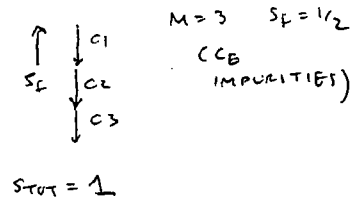 M = 3 S_f = 1/2
C1
(CE
IMPURITIES)
S_f
C2
C3
S_TOT = 1